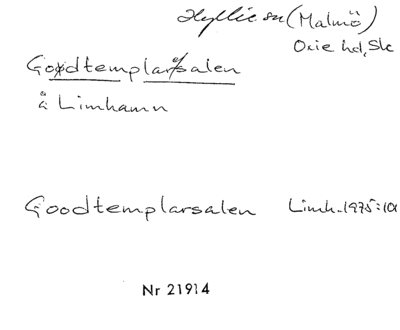 Hyllie sn (Malmö)
Oxie hd, Sk
Goodtemplarsalen
å Limhamn
Goodtemplarsalen Limh. 1975:10
Nr 21914